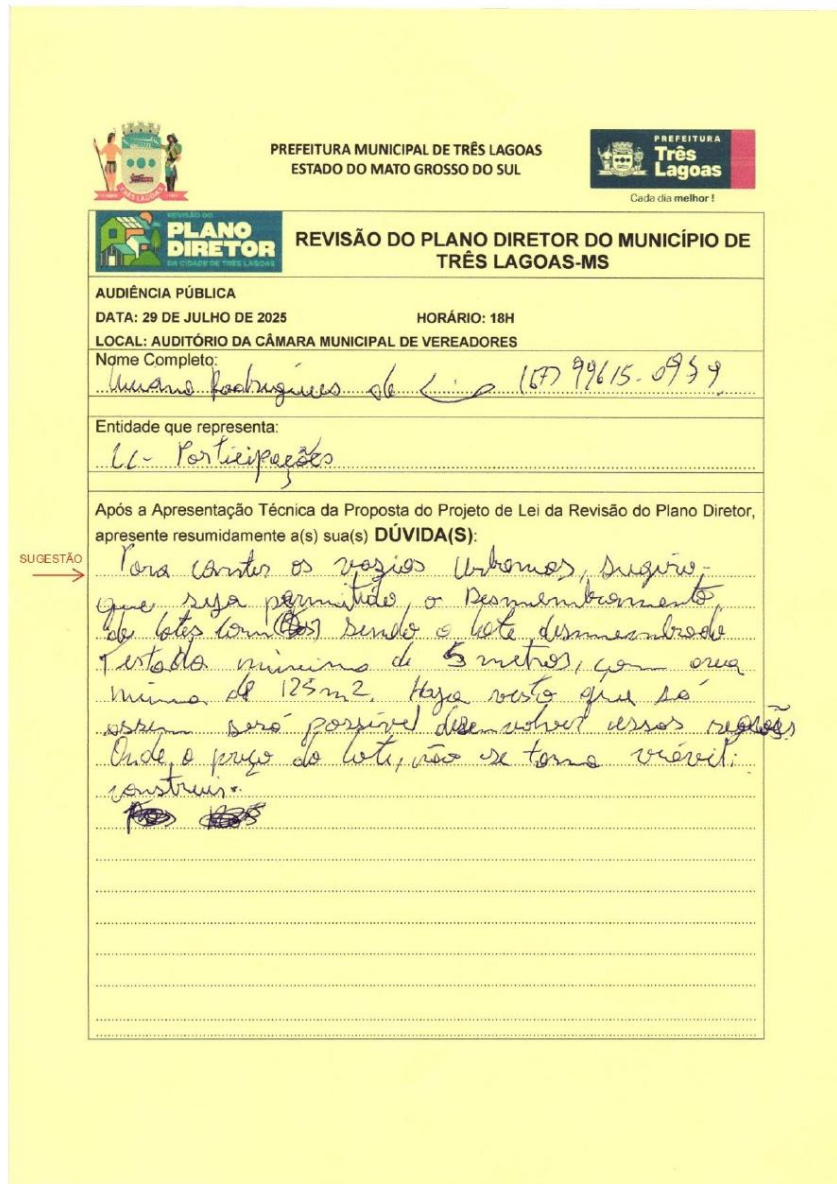 PREFEITURA MUNICIPAL DE TRÊS LAGOAS
ESTADO DO MATO GROSSO DO SUL
TRÊS LAGOAS
PREFEITURA
Três
Lagoas
Cada dia melhor !
REVISÃO DO
PLANO
DIRETOR
DA CIDADE DE TRÊS LAGOAS
REVISÃO DO PLANO DIRETOR DO MUNICÍPIO DE
TRÊS LAGOAS-MS
AUDIÊNCIA PÚBLICA
DATA: 29 DE JULHO DE 2025 HORÁRIO: 18H
LOCAL: AUDITÓRIO DA CÂMARA MUNICIPAL DE VEREADORES
Nome Completo:
Luciano Rodrigues de (67) 99615-0939
Entidade que representa:
Participações
Após a Apresentação Técnica da Proposta do Projeto de Lei da Revisão do Plano Diretor,
apresente resumidamente a(s) sua(s) DÚVIDA(S):
SUGESTÃO
Para conter os vazios Urbanos, sugiro,
que seja permitido, o Desmembramento
de lotes sendo o lote desmembrado
Testada minima de 5 metros, com area
minima de 125m2. Haja visto que só
assim será possível desenvolver essas regiões
Onde, o preço do lote, não se torna viável
construir.